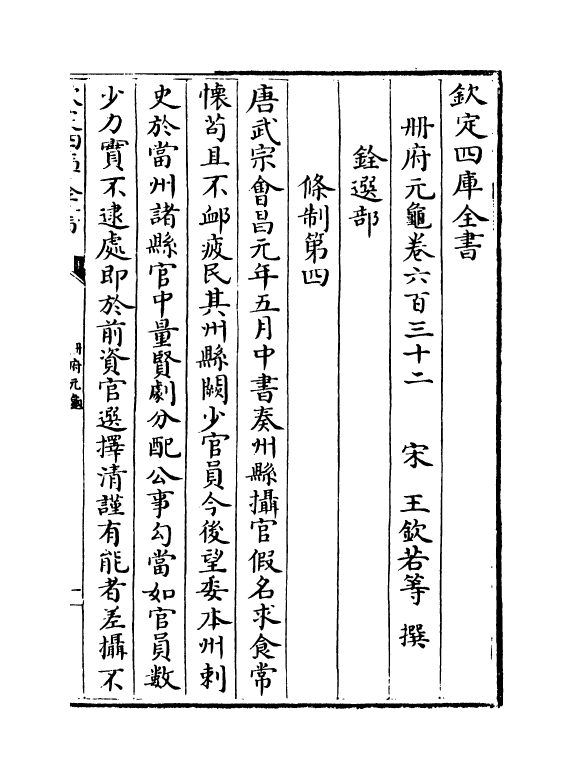 欽定四庫全書
冊府元龜卷六百三十二 宋 王欽若等 撰
銓選部
條制第四
唐武宗會昌元年五月中書奏州縣攝官假名求食常
懷苟且不䘏疲民其州縣闕少官員今後望委本州刺
史於當州諸縣官中量賢劇分配公事勾當如官員數
少力實不逮處即於前資官選擇清謹有能者差攝不
冊府元龜